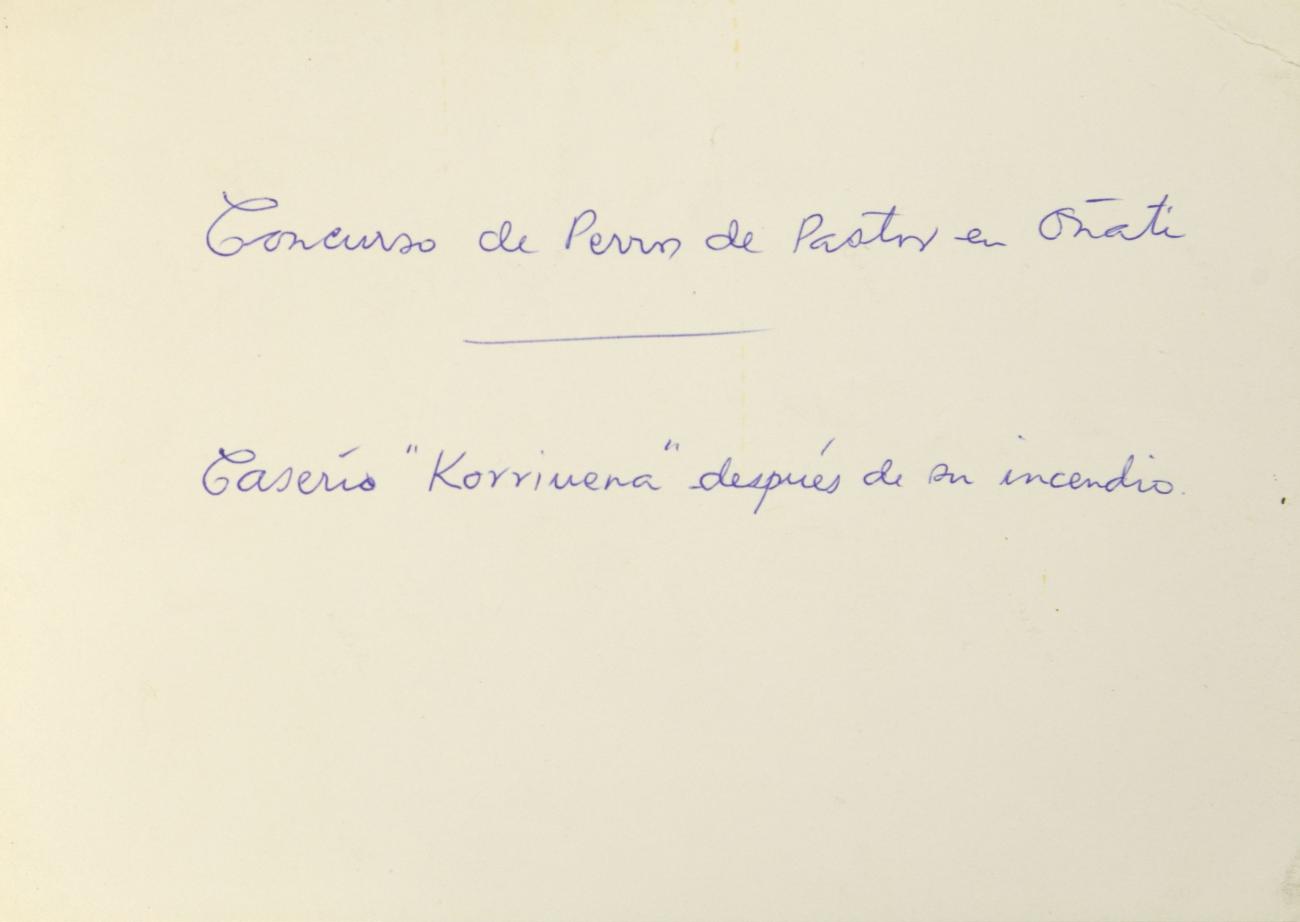 Concurso de Perros de Pastor en Oñati
Caserío "Korriuena" después de su incendio.